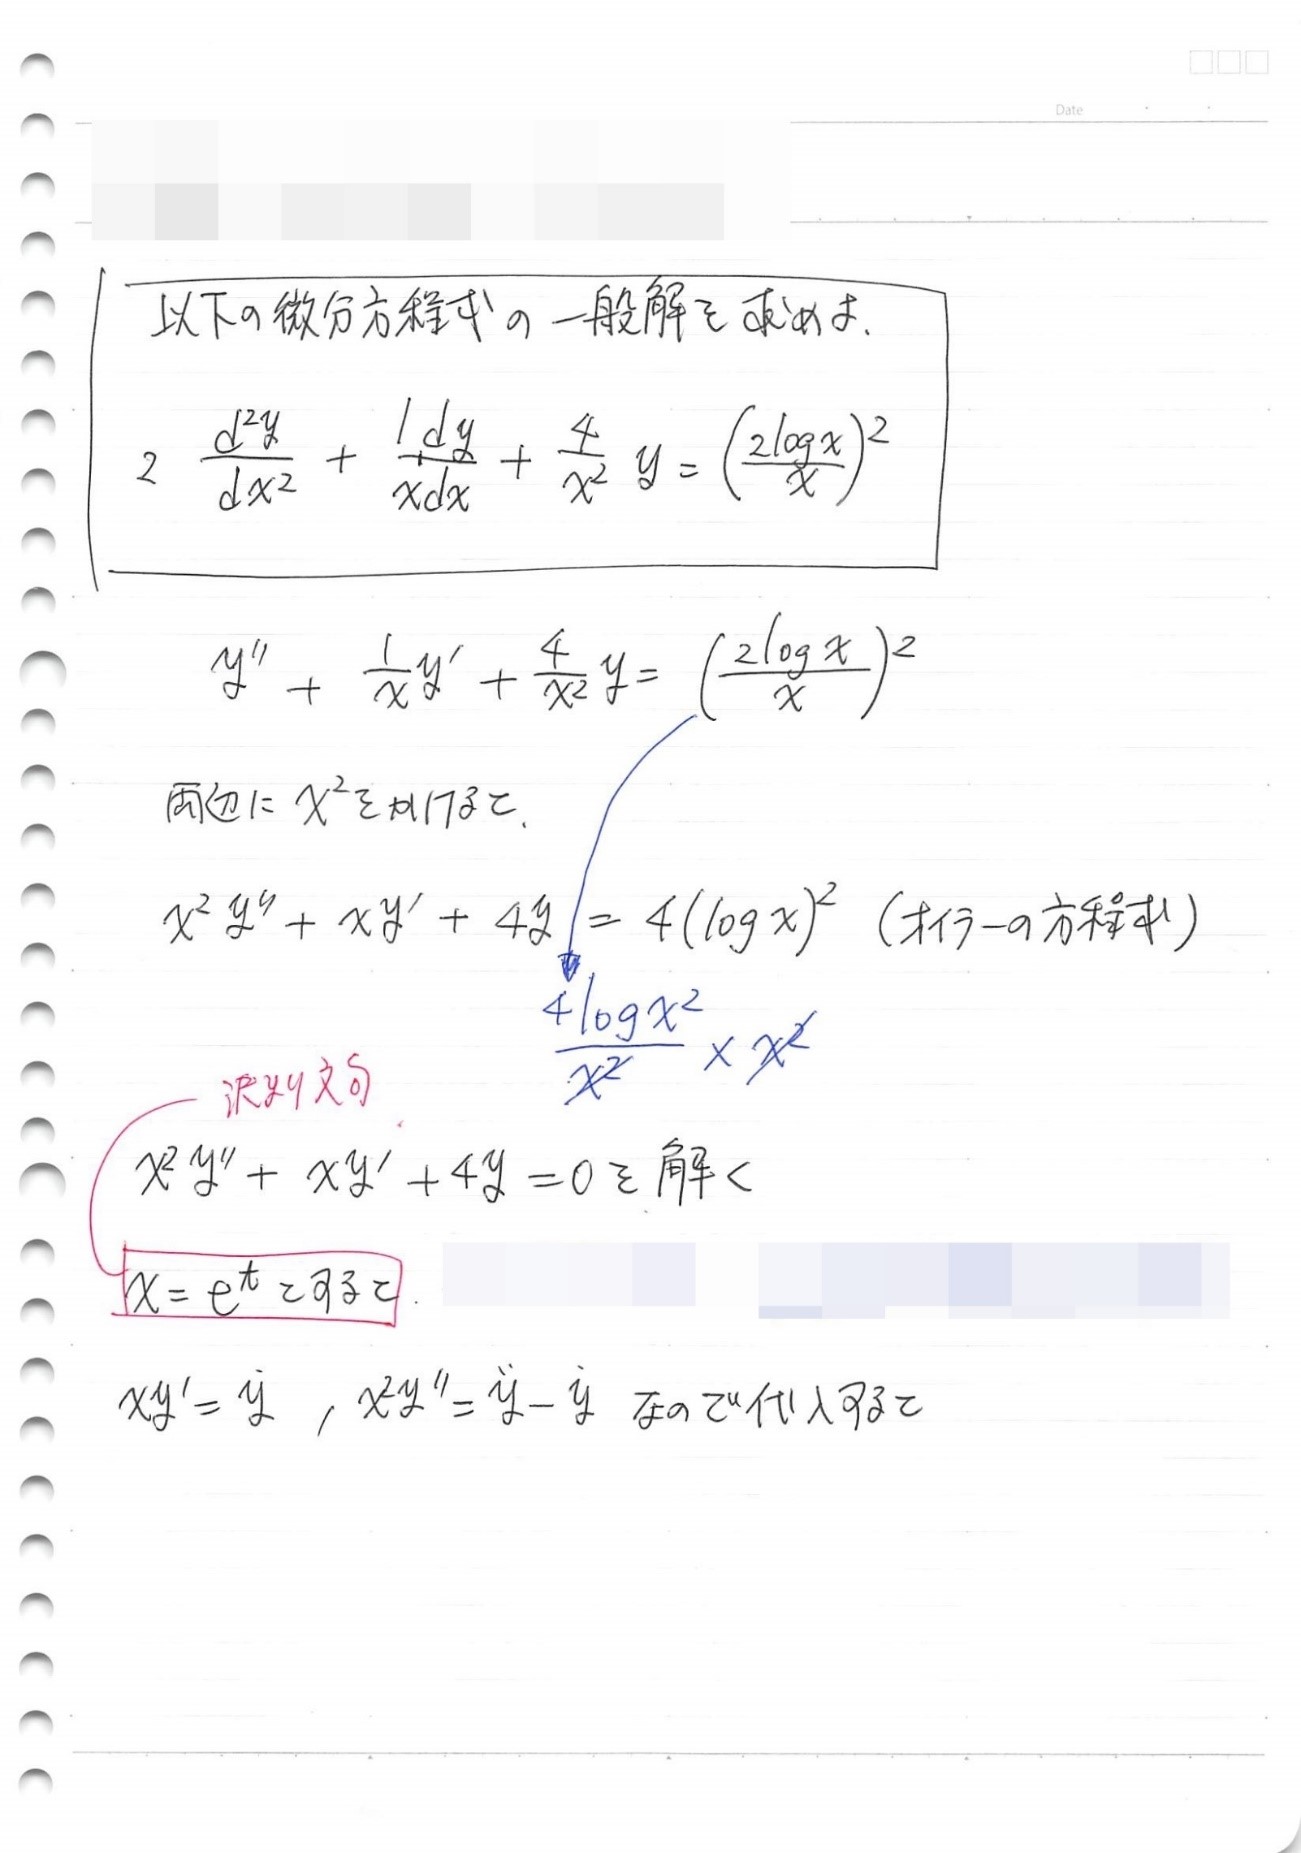 Date
以下の微分方程式の一般解を求めよ.
2 d²y/dx² + 1/x dy/dx + 4/x² y = (2logx/x)²
y'' + 1/x y' + 4/x² y = (2logx/x)²
両辺に x²をかけると.
x²y'' + xy' + 4y = 4(logx)² (オイラーの方程式)
4logx²/x² × x²
決まり文句
x²y'' + xy' + 4y = 0を解く
x = eᵗとすると.
xy' = ẏ , x²y'' = ÿ - ẏ なので代入すると